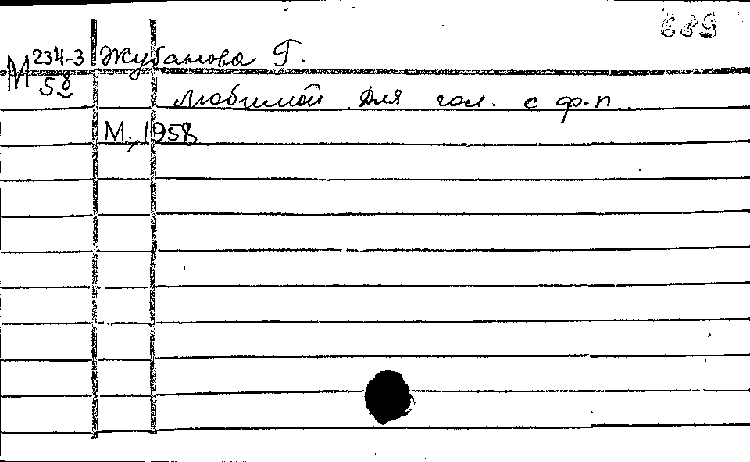 М 234-3
58
Жубанова Г.
Любимой для гол. с ф-п.
М., 1958